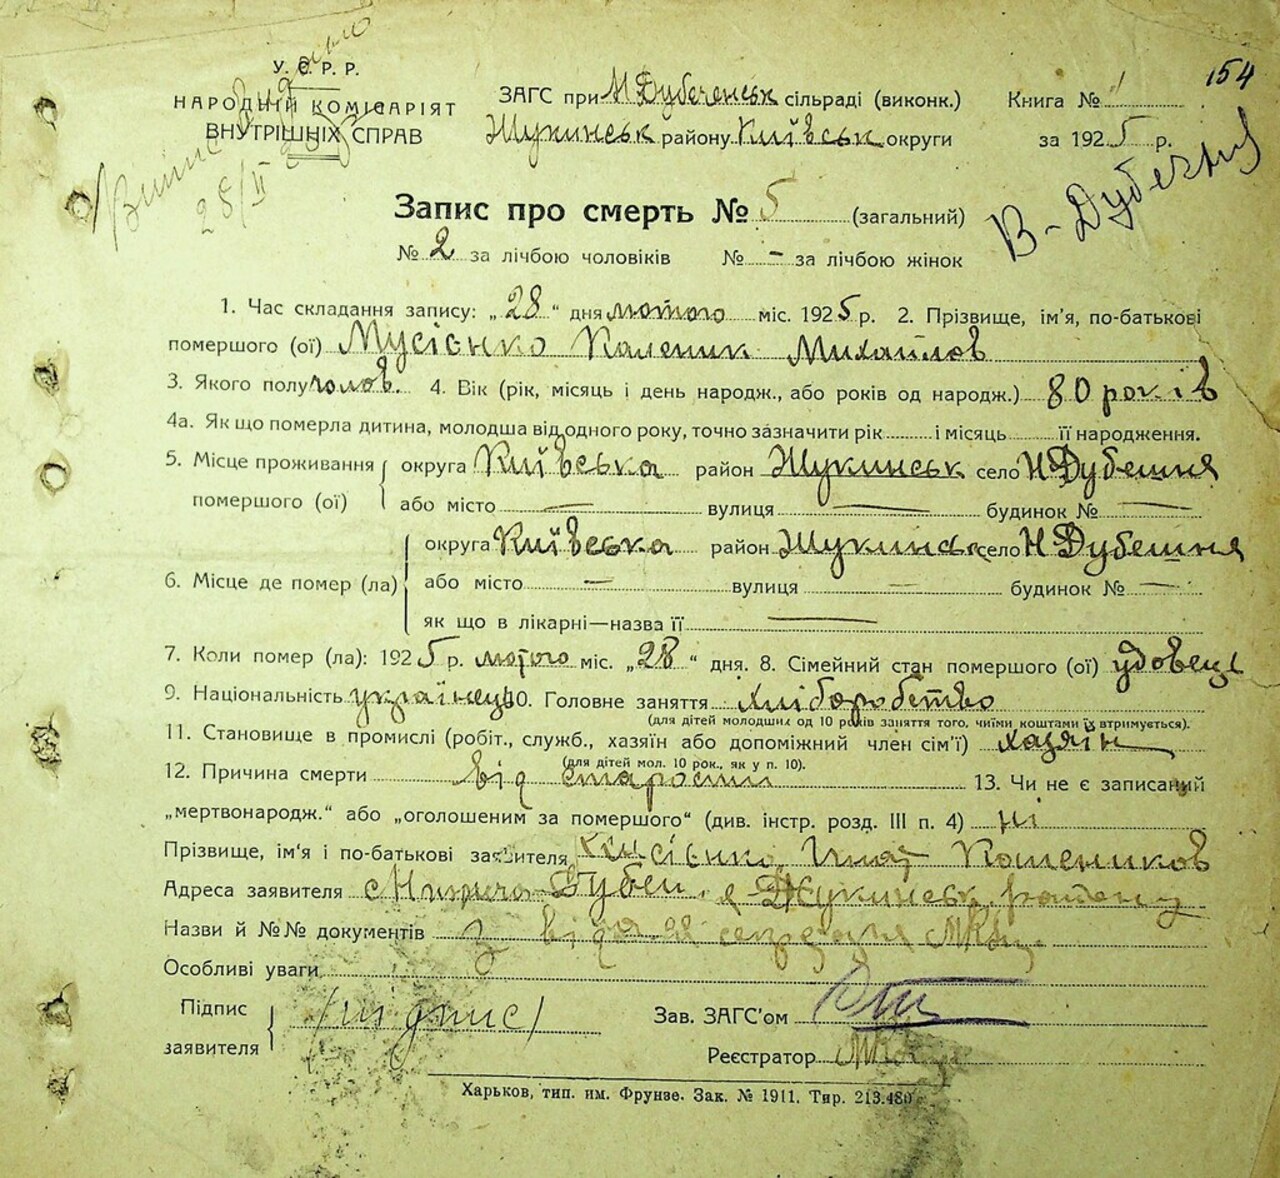 154
У. С. Р. Р.
НАРОДНІЙ КОМІСАРІЯТ
ВНУТРІШНІХ СПРАВ
28/II
ЗАГС при Н Дубеченськ сільраді (виконк.) Книга № 1
Жукинськ району Київськ округи за 1925 р.
В-Дубечня
Запис про смерть № 5 (загальний)
№ 2 за лічбою чоловіків № - за лічбою жінок
1. Час складання запису: „28" дня лютого міс. 1925 р. 2. Прізвище, ім'я, по-батькові
помершого (ої) Мусієнко Каленик Михайлов
3. Якого полу чолов. 4. Вік (рік, місяць і день народж., або років од народж.) 80 років
4а. Як що померла дитина, молодша від одного року, точно зазначити рік і місяць її народження.
5. Місце проживання округа Київська район Жукинськ село Н Дубешня
помершого (ої) або місто — вулиця — будинок № —
округа Київська район Жукинськ село Н Дубешня
6. Місце де помер (ла) або місто — вулиця — будинок № —
як що в лікарні—назва її —
7. Коли помер (ла): 1925 р. лютого міс. „28" дня. 8. Сімейний стан помершого (ої) удовець
9. Національність українець 10. Головне заняття хліборобство
(для дітей молодших од 10 років заняття того, чиїми коштами їх втримується).
11. Становище в промислі (робіт., служб., хазяїн або допоміжний член сім'ї) хазяїн
(для дітей мол. 10 рок., як у п. 10).
12. Причина смерти від старости 13. Чи не є записаний
„мертвонародж." або „оголошеним за помершого" (див. інстр. розд. III п. 4) ні
Прізвище, ім'я і по-батькові заявителя Мусієнко Гнат Калеников
Адреса заявителя с Дубеч. Жукинськ району
Назви й №№ документів
Особливі уваги
Підпис /підпис/ Зав. ЗАГС'ом
заявителя Реєстратор
Харьков, тип. им. Фрунзе. Зак. № 1911. Тир. 213.480